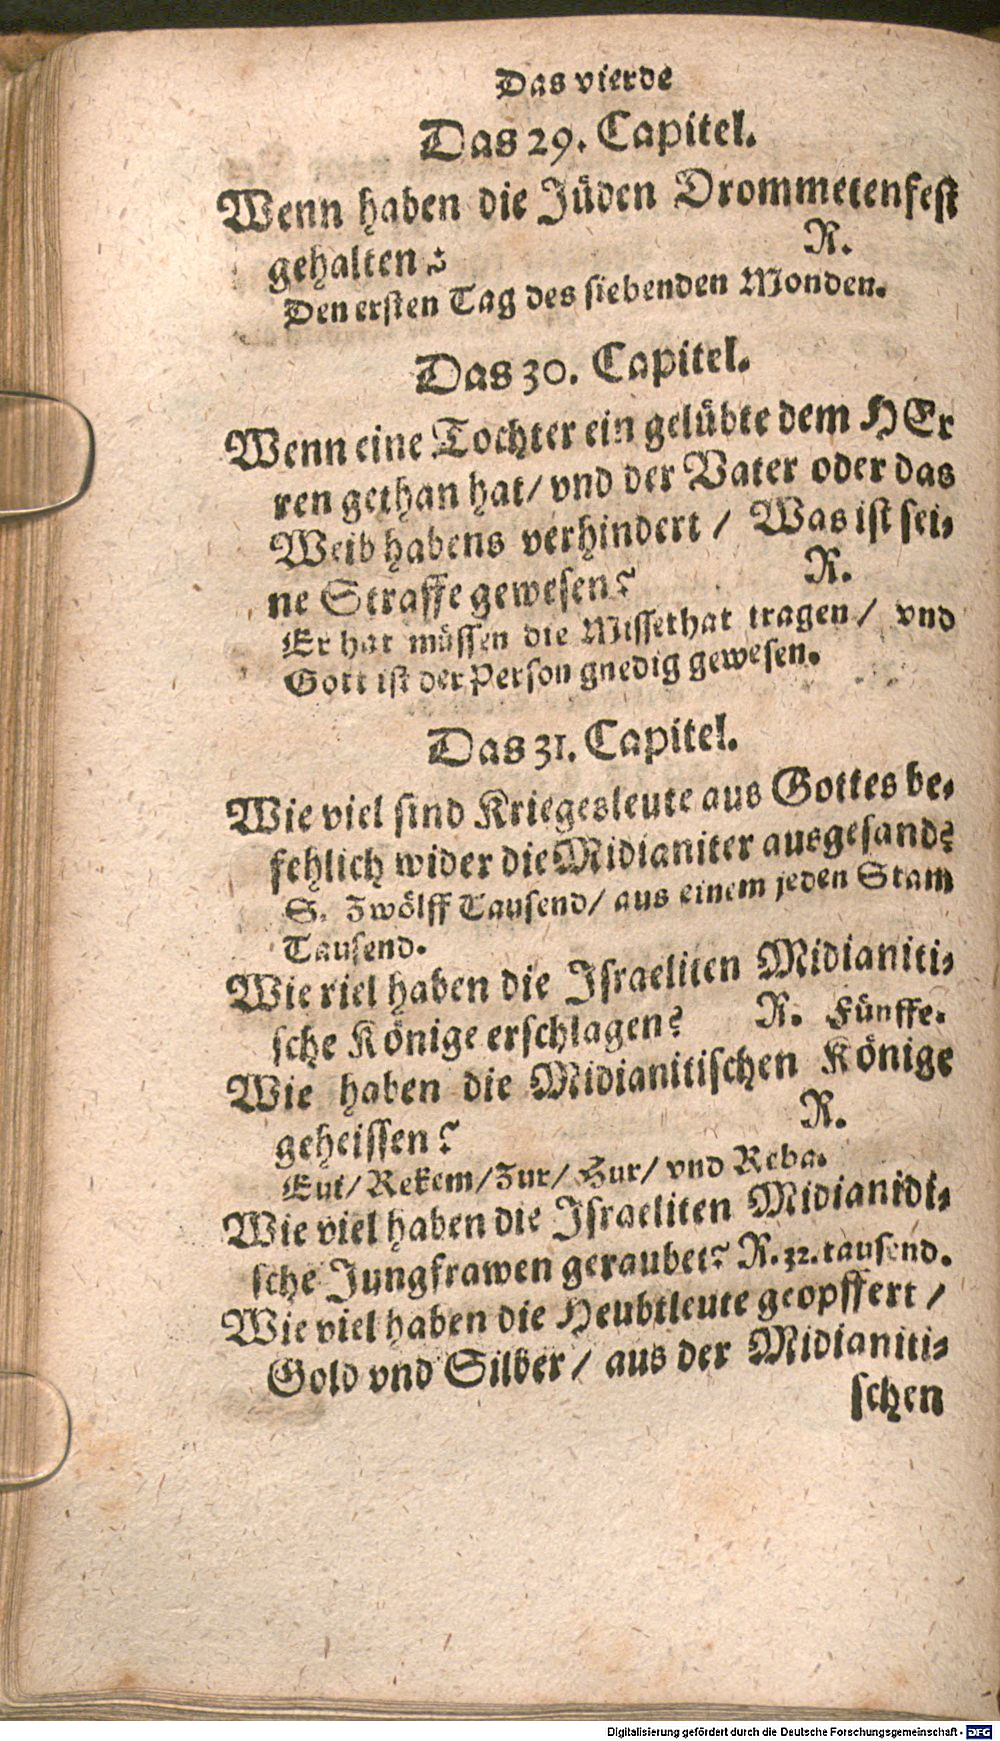 Das vierde
Das 29. Capitel.
Wenn haben die Jüden Drommetenfest
gehalten? R.
Den ersten Tag des siebenden Monden.
Das 30. Capitel.
Wenn eine Tochter ein gelübte dem HEr
ren gethan hat/ vnd der Vater oder das
Weib habens verhindert / Was ist sei⸗
ne Straffe gewesen? R.
Er hat müssen die Missethat tragen/ vnd
Gott ist der Person gnedig gewesen.
Das 31. Capitel.
Wie viel sind Kriegesleute aus Gottes be⸗
fehlich wider die Midianiter ausgesand?
S. Zwölff Tausend/ aus einem jeden Stam
Tausend.
Wie riel haben die Israeliten Midianiti⸗
sche Könige erschlagen? R. Fünffe.
Wie haben die Midianitischen Könige
geheissen? R.
Eui/ Rekem/ Zur/ Hur/ vnd Reba.
Wie viel haben die Israeliten Midianidi⸗
sche Jungfrawen geraubet? R. 32. tausend.
Wie viel haben die Heubtleute geopffert /
Gold vnd Silber / aus der Midianiti⸗
schen
Digitalisierung gefördert durch die Deutsche Forschungsgemeinschaft - DFG